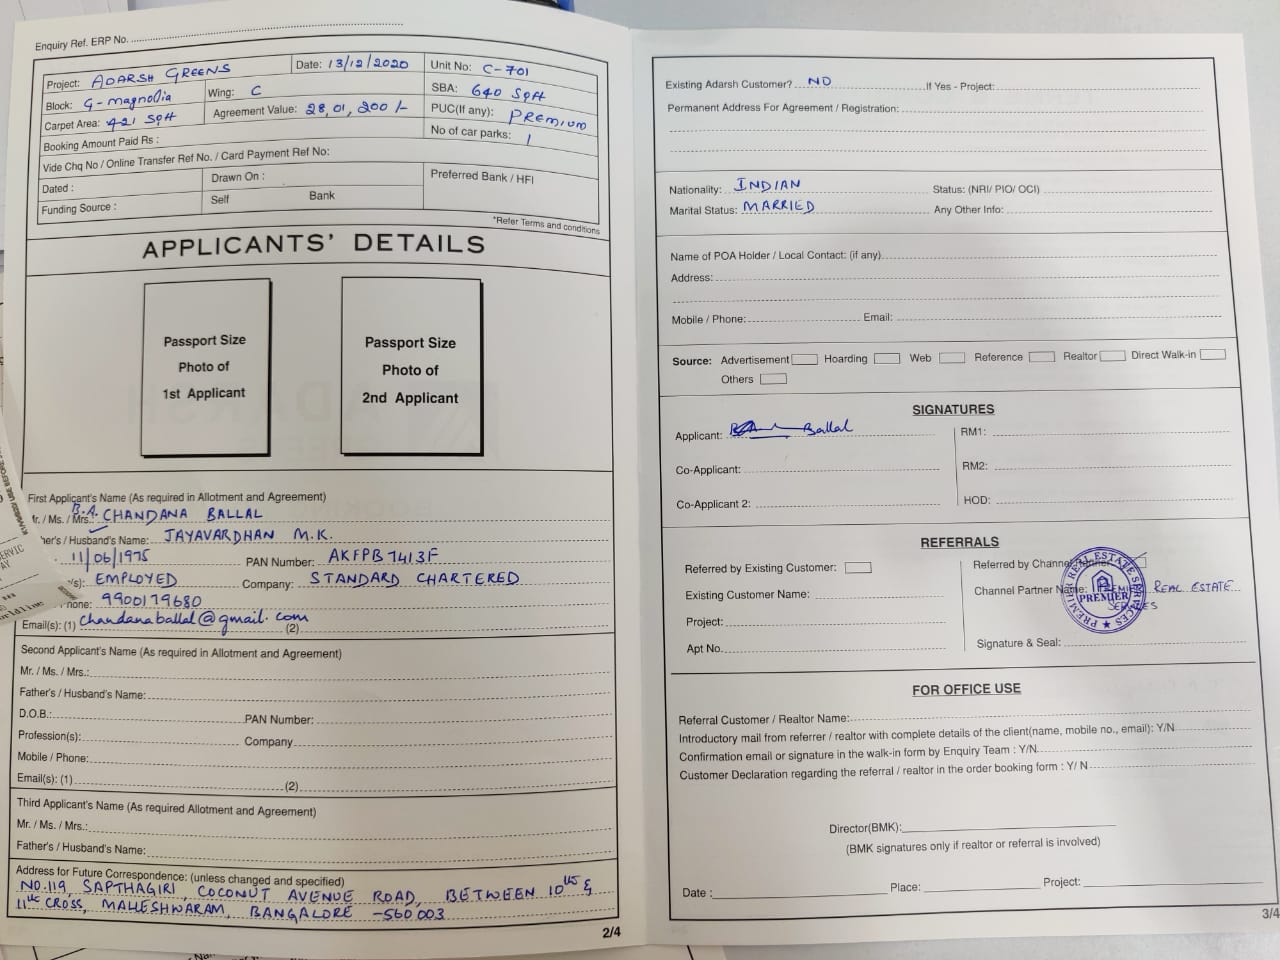 Enquiry Ref. ERP No.
Project: ADARSH GREENS Date: 13/12/2020 Unit No: C-701
Block: G-magnolia Wing: C SBA: 640 Sqft
Carpet Area: 421 Sqft Agreement Value: 28,01,200/- PUC(If any): PREMIUM
Booking Amount Paid Rs : No of car parks: 1
Vide Chq No / Online Transfer Ref No. / Card Payment Ref No:
Dated : Drawn On : Preferred Bank / HFI
Funding Source : Self Bank
*Refer Terms and conditions
APPLICANTS' DETAILS
Passport Size
Photo of
1st Applicant
Passport Size
Photo of
2nd Applicant
First Applicant's Name (As required in Allotment and Agreement)
Mr. / Ms. / Mrs.: B.A. CHANDANA BALLAL
her's / Husband's Name: JAYAVARDHAN M.K.
11/06/1975 PAN Number: AKFPB7413F
's): EMPLOYED Company: STANDARD CHARTERED
hone: 9900179680
Email(s): (1) chandanaballal@gmail.com (2)
Second Applicant's Name (As required in Allotment and Agreement)
Mr. / Ms. / Mrs.:
Father's / Husband's Name:
D.O.B.: PAN Number:
Profession(s): Company
Mobile / Phone:
Email(s): (1) (2)
Third Applicant's Name (As required Allotment and Agreement)
Mr. / Ms. / Mrs.:
Father's / Husband's Name:
Address for Future Correspondence: (unless changed and specified)
NO.119, SAPTHAGIRI, COCONUT AVENUE ROAD, BETWEEN 10th &
11th CROSS, MALLESHWARAM, BANGALORE -560003
2/4
Existing Adarsh Customer? NO If Yes - Project:
Permanent Address For Agreement / Registration:
Nationality: INDIAN Status: (NRI/ PIO/ OCI)
Marital Status: MARRIED Any Other Info:
Name of POA Holder / Local Contact: (if any)
Address:
Mobile / Phone: Email:
Source: Advertisement Hoarding Web Reference Realtor Direct Walk-in
Others
SIGNATURES
Applicant: Ballal RM1:
Co-Applicant: RM2:
Co-Applicant 2: HOD:
REFERRALS
Referred by Existing Customer: Referred by Channel
Existing Customer Name: Channel Partner Name: PREMIER REAL ESTATE
SERVICES
Project:
Apt No. Signature & Seal:
PREMIER REAL ESTATE SERVICES
PREMIER
FOR OFFICE USE
Referral Customer / Realtor Name:
Introductory mail from referrer / realtor with complete details of the client(name, mobile no., email): Y/N
Confirmation email or signature in the walk-in form by Enquiry Team : Y/N
Customer Declaration regarding the referral / realtor in the order booking form : Y/ N
Director(BMK):
(BMK signatures only if realtor or referral is involved)
Date : Place: Project:
3/4